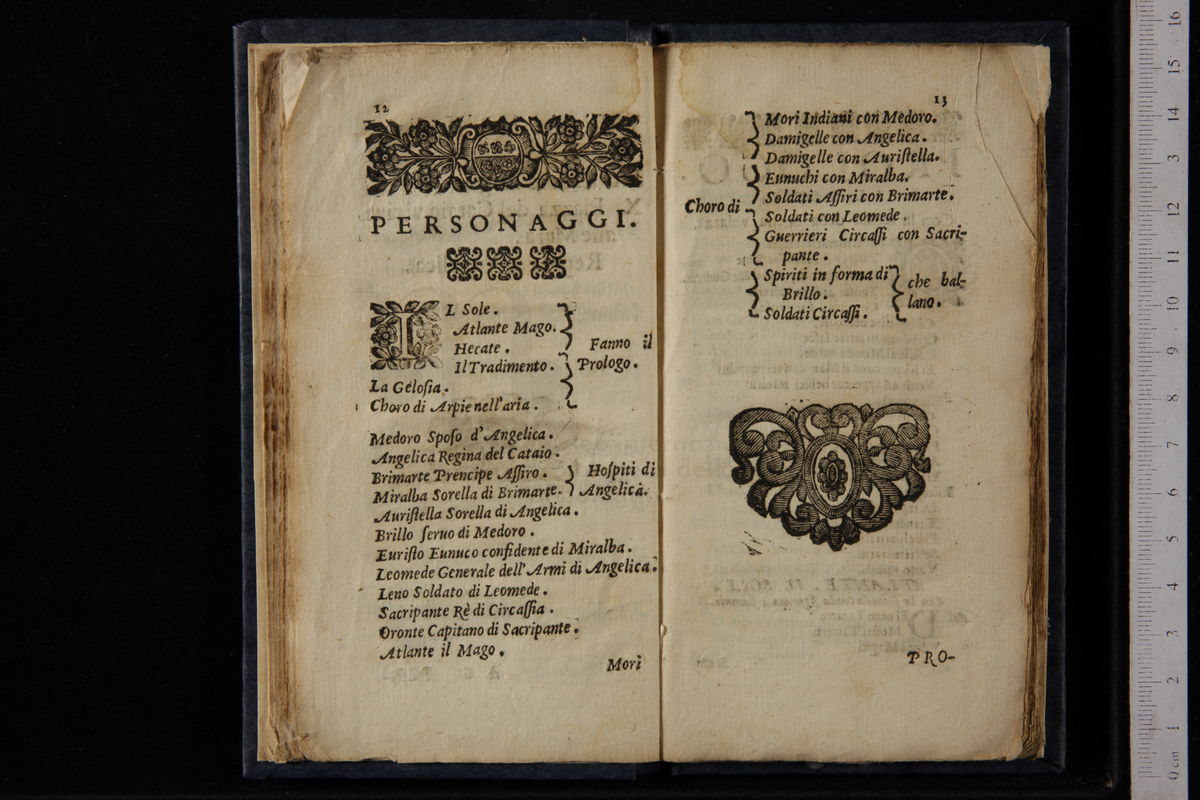 12
PERSONAGGI.
IL Sole.
Atlante Mago.
Hecate.
Il Tradimento.
La Gelosia.
Choro di Arpie nell'aria.
Fanno il
Prologo.
Medoro Sposo d'Angelica.
Angelica Regina del Cataio.
Brimarte Prencipe Assiro.
Miralba Sorella di Brimarte.
Hospiti di
Angelica.
Auristella Sorella di Angelica.
Brillo seruo di Medoro.
Euristo Eunuco confidente di Miralba.
Leomede Generale dell'Armi di Angelica.
Leno Soldato di Leomede.
Sacripante Rè di Circassia.
Oronte Capitano di Sacripante.
Atlante il Mago.
Mori
13
Choro di
Mori Indiani con Medoro.
Damigelle con Angelica.
Damigelle con Auristella.
Eunuchi con Miralba.
Soldati Assiri con Brimarte.
Soldati con Leomede.
Guerrieri Circassi con Sacri-
pante.
Spiriti in forma di
Brillo.
Soldati Circassi.
che bal-
lano.
PRO-
0 cm 1 2 3 4 5 6 7 8 9 10 11 12 13 14 15 16